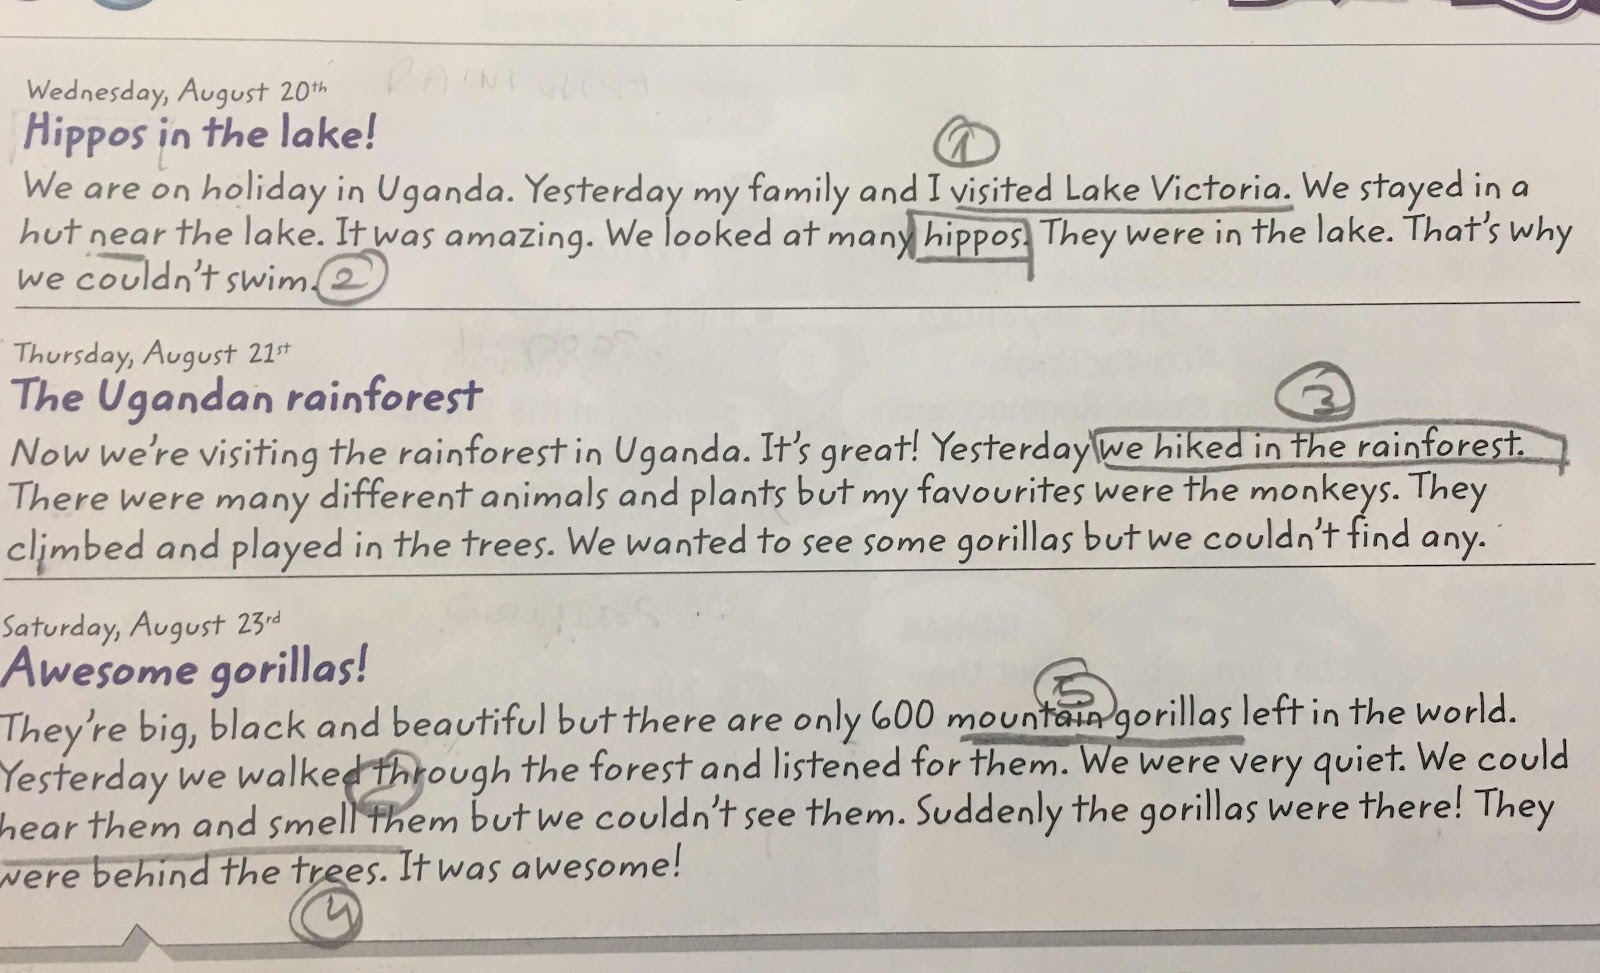 Wednesday, August 20th
Hippos in the lake!
1
We are on holiday in Uganda. Yesterday my family and I visited Lake Victoria. We stayed in a
hut near the lake. It was amazing. We looked at many hippos. They were in the lake. That's why
we couldn't swim. 2
Thursday, August 21st
The Ugandan rainforest
3
Now we're visiting the rainforest in Uganda. It's great! Yesterday we hiked in the rainforest.
There were many different animals and plants but my favourites were the monkeys. They
climbed and played in the trees. We wanted to see some gorillas but we couldn't find any.
Saturday, August 23rd
Awesome gorillas!
5
They're big, black and beautiful but there are only 600 mountain gorillas left in the world.
Yesterday we walked through the forest and listened for them. We were very quiet. We could
2
hear them and smell them but we couldn't see them. Suddenly the gorillas were there! They
were behind the trees. It was awesome!
4